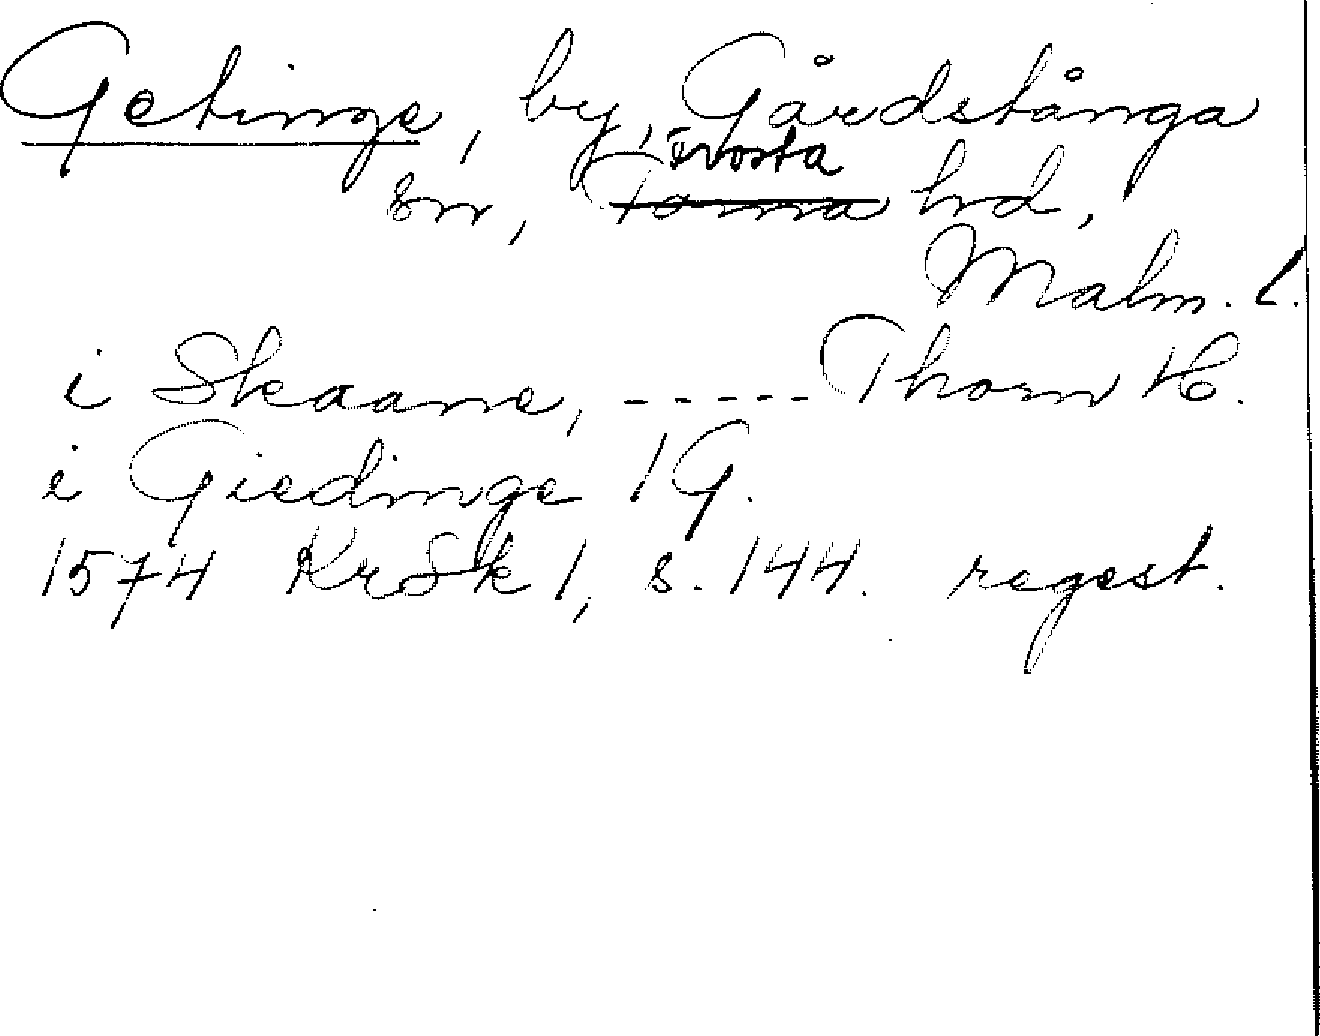 Getinge, by, Gårdstånga
Frosta
sn, Torna hd,
Malm. l.
i Skaane, ----- Thom H.
i Giedinge 1 G.
1574 KrSk 1, s. 144. regest.